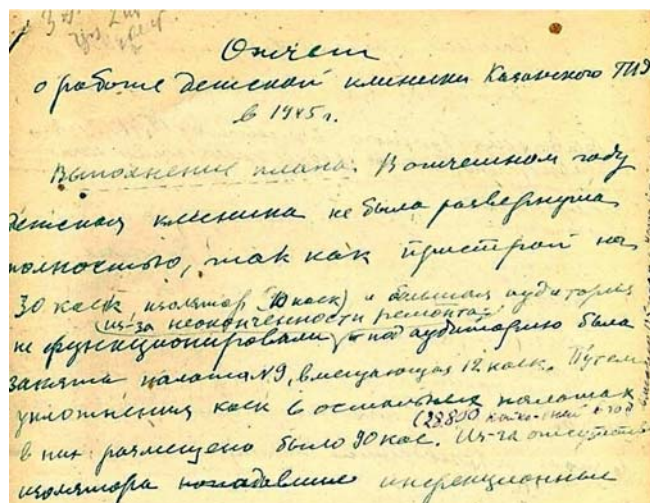 Отчет
о работе детской клиники Казанского ГИД
в 1945 г.
Выполнение плана. В отчетном году
детская клиника не была развернута
полностью, так как пристрой на
30 коек изолятор (10 коек) и большая аудитория
(из-за неоконченности ремонта)
не функционировали и под аудиторию была
занята палата №9, вмещающая 12 коек. Путем
уплотнения коек в остальных палатах
(28800 койко-дней в год
в них размещено было 90 кое. Из-за отсутств
изолятора попадавшие инфекционные